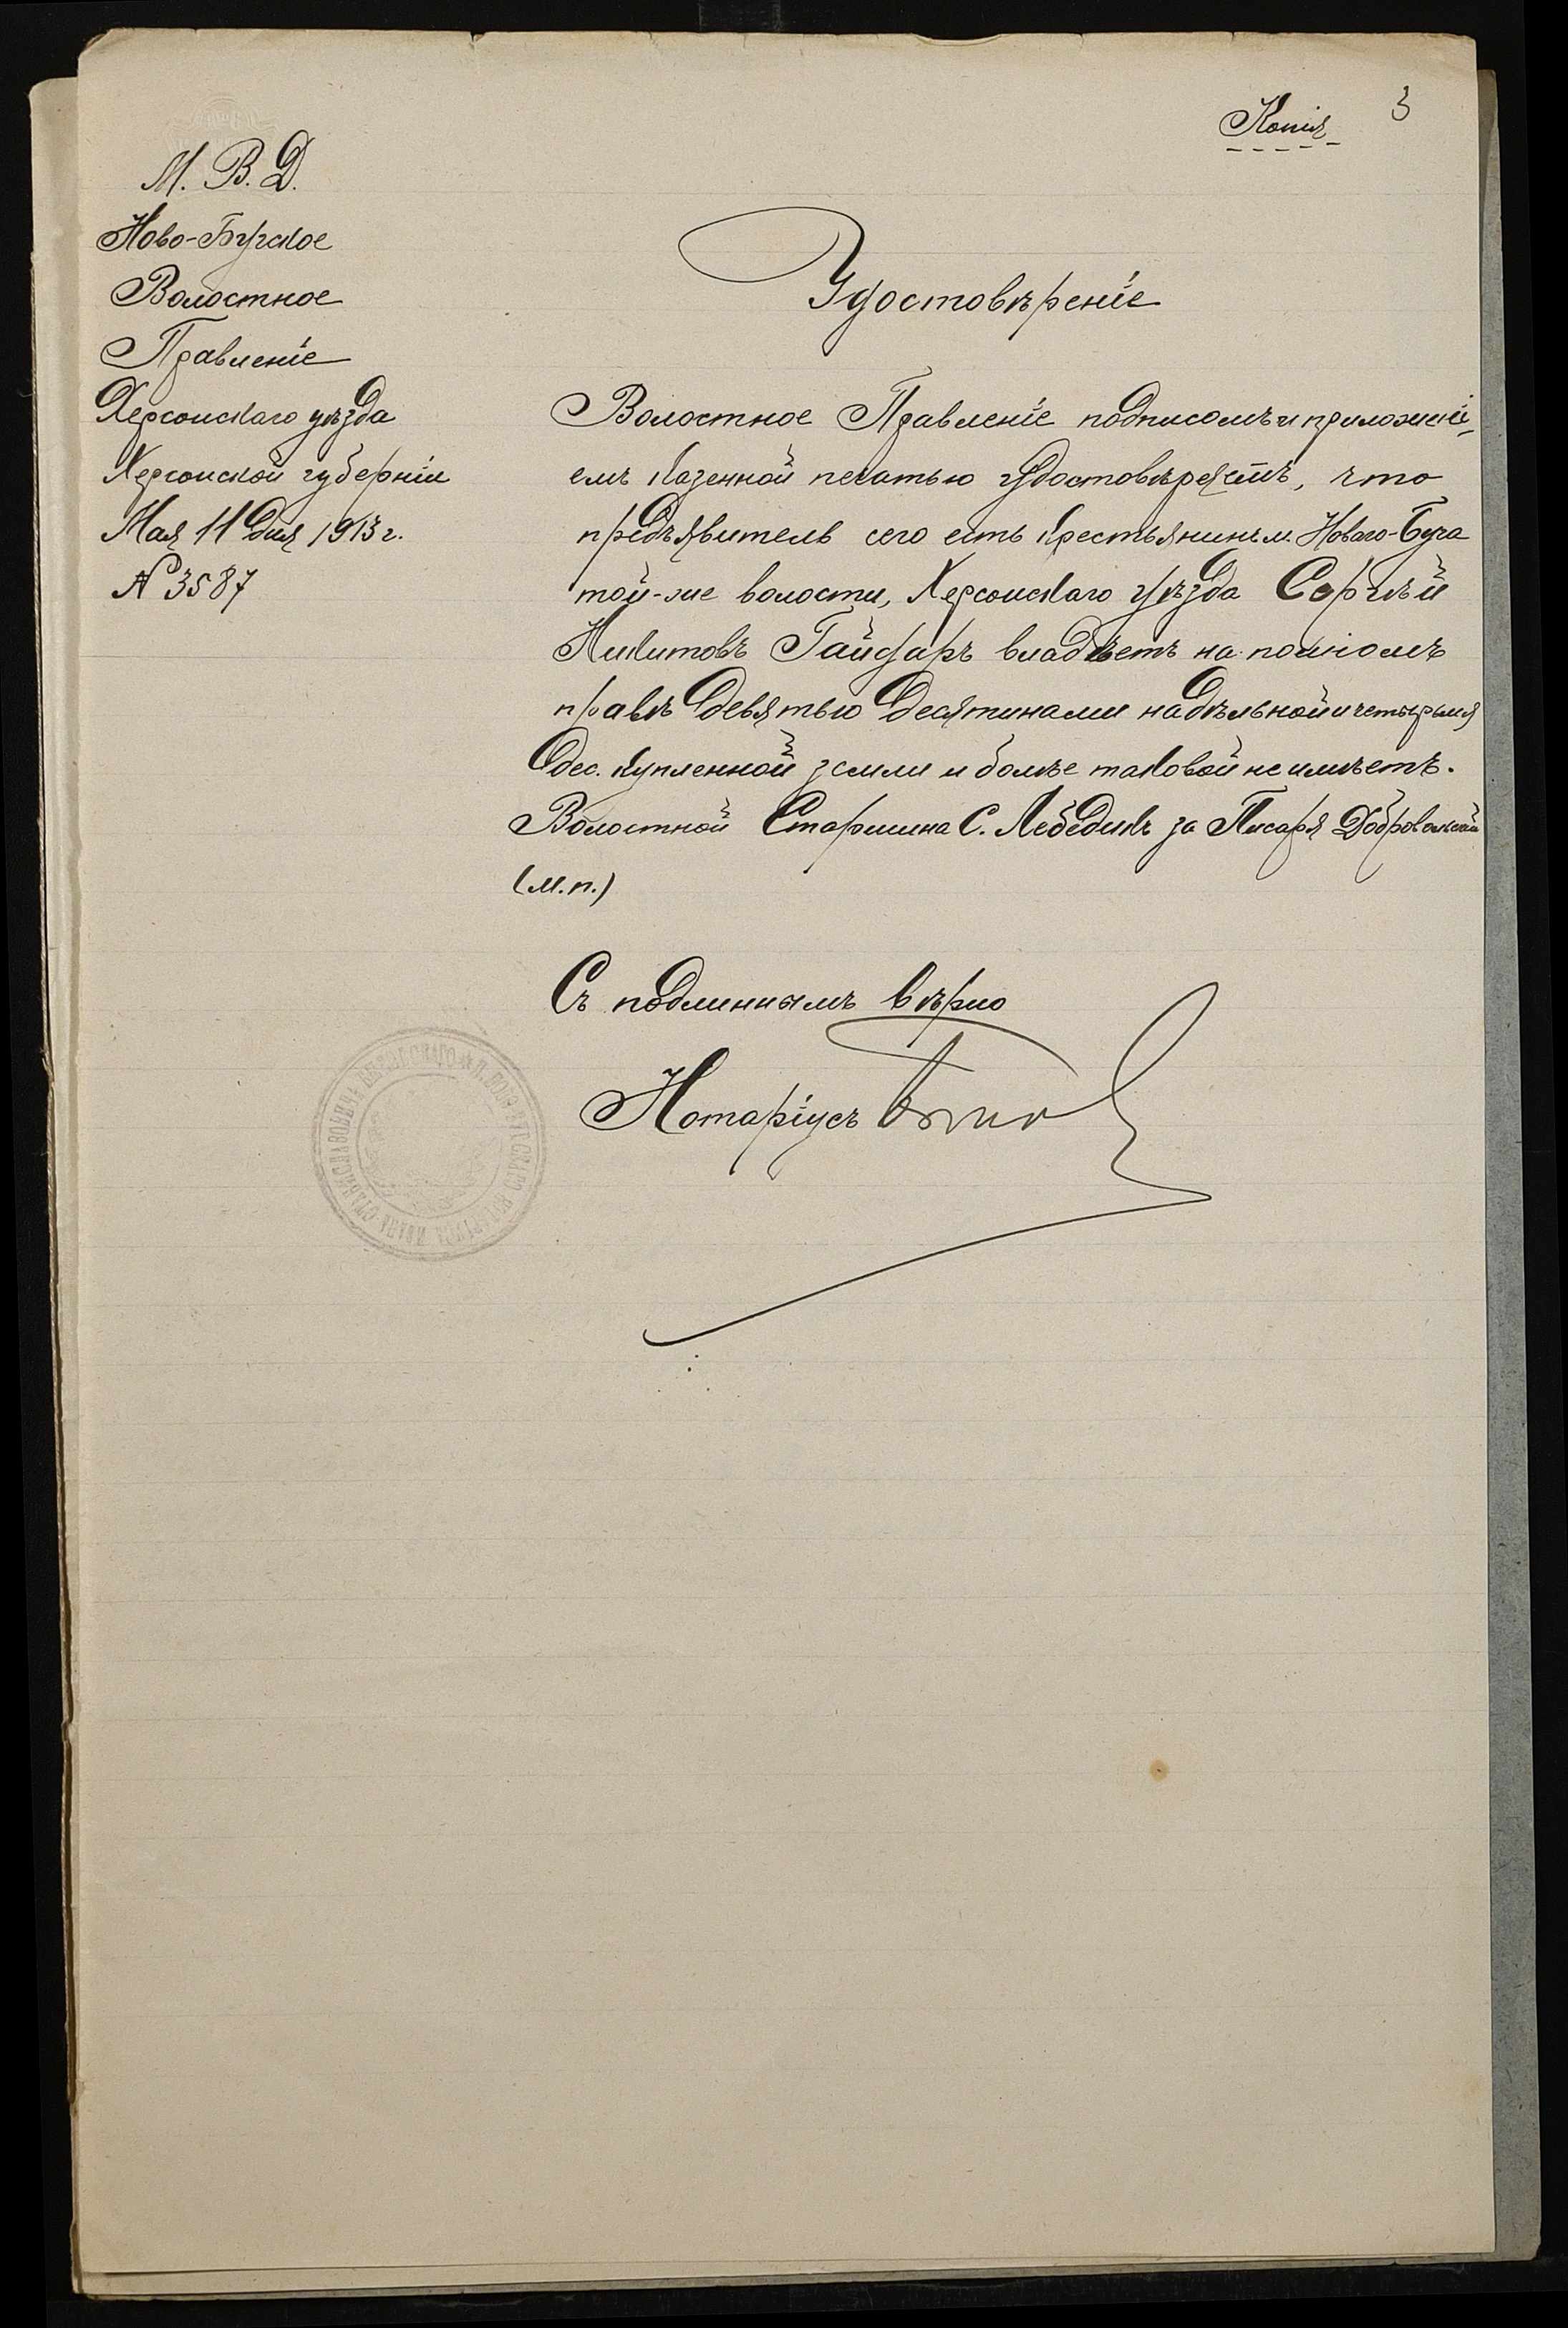 Копія
3
М. В. Д.
Ново-Бугское
Волостное
Правленіе
Херсонскаго уѣзда
Херсонской губерніи
Мая 11 дня 1913 г.
№ 3587
Удостовѣреніе
Волостное Правленіе подписомъ и приложені-
емъ казенной печатью удостовѣряетъ, что
предъявитель сего есть крестьянинъ м. Новаго-Буга
той-же волости, Херсонскаго уѣзда Сергѣй
Никитовъ Гайдаръ владѣетъ на полномъ
правѣ девятью десятинами надѣльной и четырьмя
дес. купленной земли и болѣе таковой не имѣетъ.
Волостной Старшина С. Лебедикъ за Писаря Добровольскій
(м.п.)
Съ подлиннымъ вѣрно
Нотаріусъ